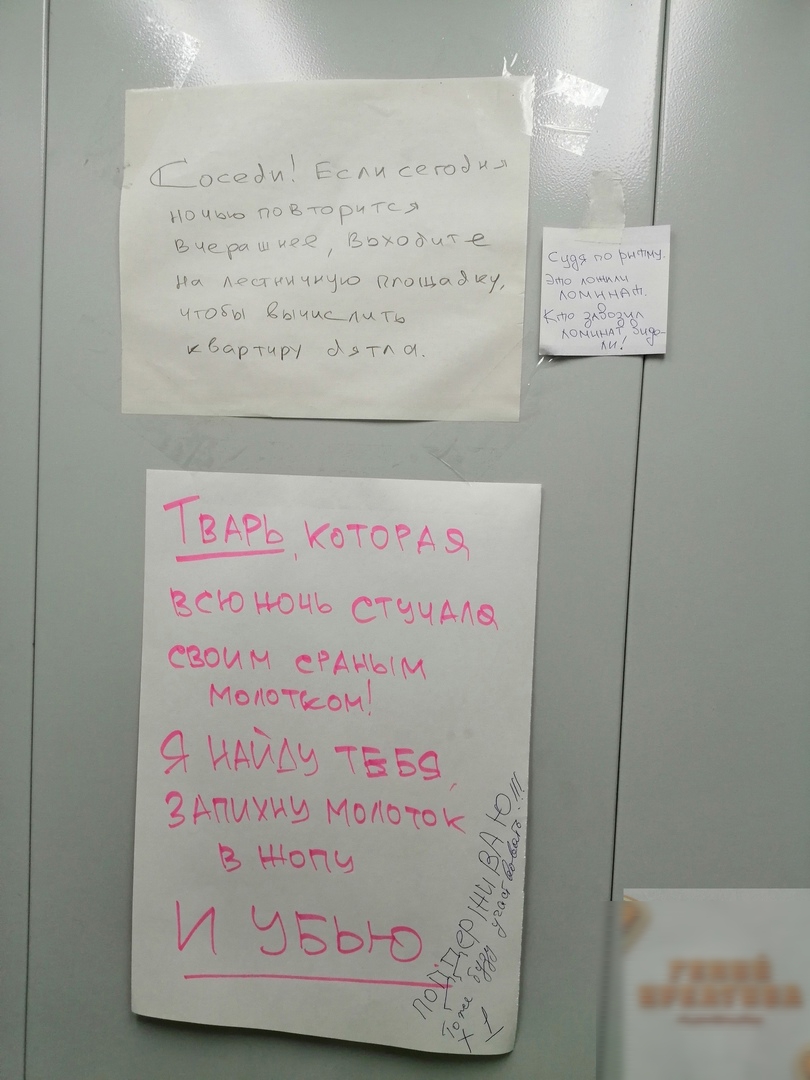 Соседи! Если сегодня
ночью повторится
вчерашнее, выходите
на лестничную площадку,
чтобы вычислить
квартиру дятла.
Судя по ритму.
Это ложили
ломинат.
Кто завозил
ломинат видо-
ли!
Тварь, которая
всю ночь стучала
своим сраным
молотком!
Я найду тебя,
запихну молоток
в жопу
и убью
ПОДДЕРЖИВАЮ
Тоже буду участвовать!!!